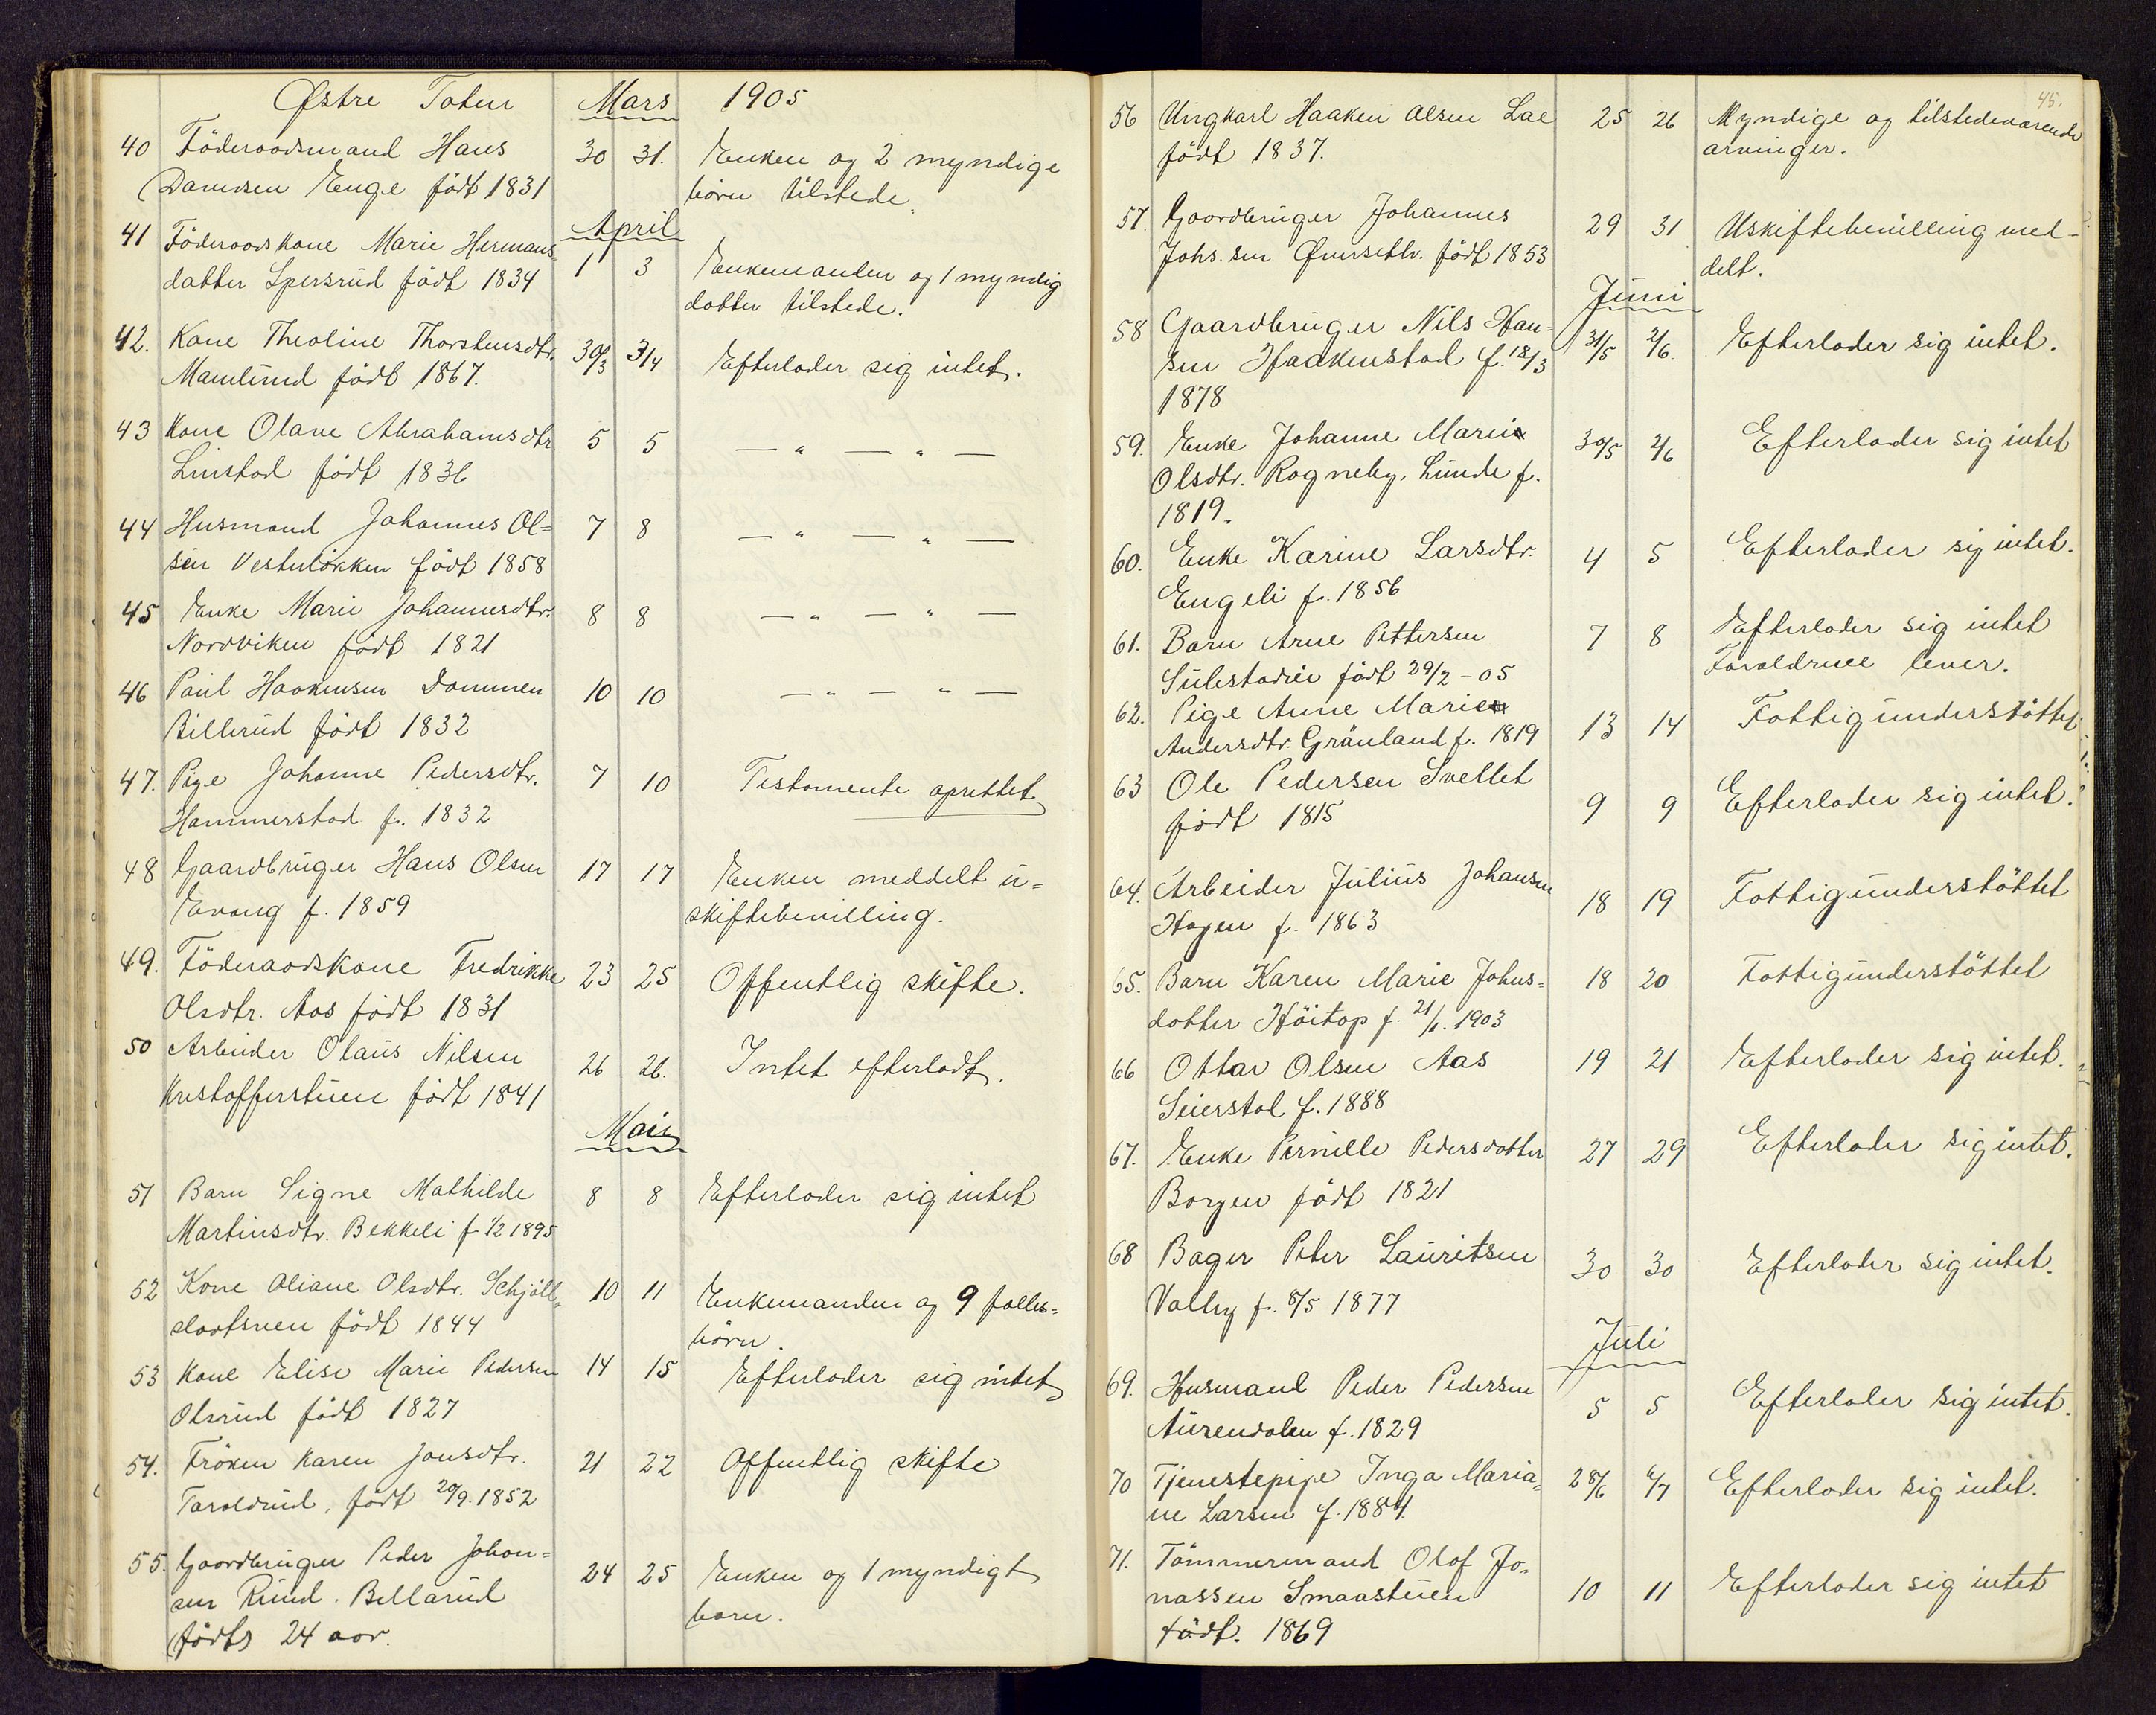 Østre Toten Mars 1905
40 Föderaadsmand Hans 30 31. Enken og 2 myndige
Danielsen Enge födt 1831 börn tilstede.
April
41 Föderaadskone Marie Hermans- 1 3 Enkemanden og 1 myndig
datter Spersrud födt 1834 datter tilstede.
42. Kone Theoline Thorstensdtr. 30/3 3/4 Efterlader sig intet.
Mamlund födt 1867.
43 Kone Olave Abrahamsdtr 5 5 — " — " —
Linstad födt 1836
44 Husmand Johannes Ol= 7 8 — " — " —
sen Vestrelökken födt 1858
45 Enke Marie Johannesdtr. 8 8 — " — " —
Nordviken födt 1821
46 Paul Haakensen Dammen 10 10 — " — " —
Billerud födt 1832
47. Pige Johanne Pedersdtr. 7 10 Testamente oprettet
Hammerstad f. 1832
48 Gaardbruger Hans Olsen 17 17 Enken meddelt u=
Evang f. 1859 skiftebevilling.
49. Föderaadskone Fredrikke 23 25 Offentlig skifte.
Olsdtr. Aas födt 1831
50 Arbeider Olaus Nilsen 26 26. Intet efterladt.
Kristofferstuen födt 1841
Mai
51 Barn Signe Mathilde 8 8 Efterlader sig intet
Martinsdtr. Bekkeli f 1/2 1895
52 Kone Oliane Olsdtr. Schjöll- 10 11 Enkemanden og 9 fælles=
födt 1844 börn.
53 Kone Elise Marie Pedersen 14 15 Efterlader sig intet
Olsrud födt 1827
54. Fröken Karen Jonsdtr. 21 22 Offentlig skifte
Taraldrud, födt 20/9. 1852
55. Gaardbruger Peder Johan= 24 25 Enken og 1 myndigt
sen Rund. Billarud barn.
födt 24 aar.
45.
56 Ungkarl Haaken Olsen Lae 25 26 Myndige og tilstedeværende
födt 1837. arvinger.
57. Gaardbruger Johannes 29 31 Uskiftebevilling med-
Johs.sen födt 1853 delt.
Juni
58 Gaardbruger Nils Han- 31/5 2/6. Efterlader sig intet.
sen Haakenstad f. 18/3
1878
59. Enke Johanne Marie 30/5 2/6 Efterlader sig intet
Olsdtr. Rogneby, Lunde f.
1819.
60. Enke Karine Larsdtr. 4 5 Efterlader sig intet.
Engeli f. 1856
61. Barn Arne Pettersen 7 8 Efterlader sig intet
födt 29/2 - 05 Forældrene lever.
62. Pige Anne Marie 13 14 Fattigunderstöttet
Andersdtr. Grönland f. 1819
63 Ole Pedersen Svellet 9 9 Efterlader sig intet.
födt 1815
64. Arbeider Julius Johansen 18 19 Fattigunderstöttet
Hagen f. 1863
65. Barn Karen Marie Johns= 18 20 Fattigunderstöttet
datter Höitop f. 21/1. 1903
66 Ottar Olsen Aas 19 21 Efterlader sig intet.
Seierstal f. 1888
67. Enke Pernille Pedersdatter 27 29 Efterlader sig intet.
Borgen födt 1821
68 Bager Peter Lauritsen 30 30 Efterlader sig intet.
Valby f. 8/5 1877
Juli
69. Husmand Peder Pedersen 5 5 Efterlader sig intet.
Aurendalen f. 1829
70 Tjenestepige Inga Maria- 28/6 6/7 Efterlader sig intet.
ne Larsen f. 1884.
71. Tömmermand Olof Jo- 10 11 Efterlader sig intet
nassen Smaastuen
födt. 1869